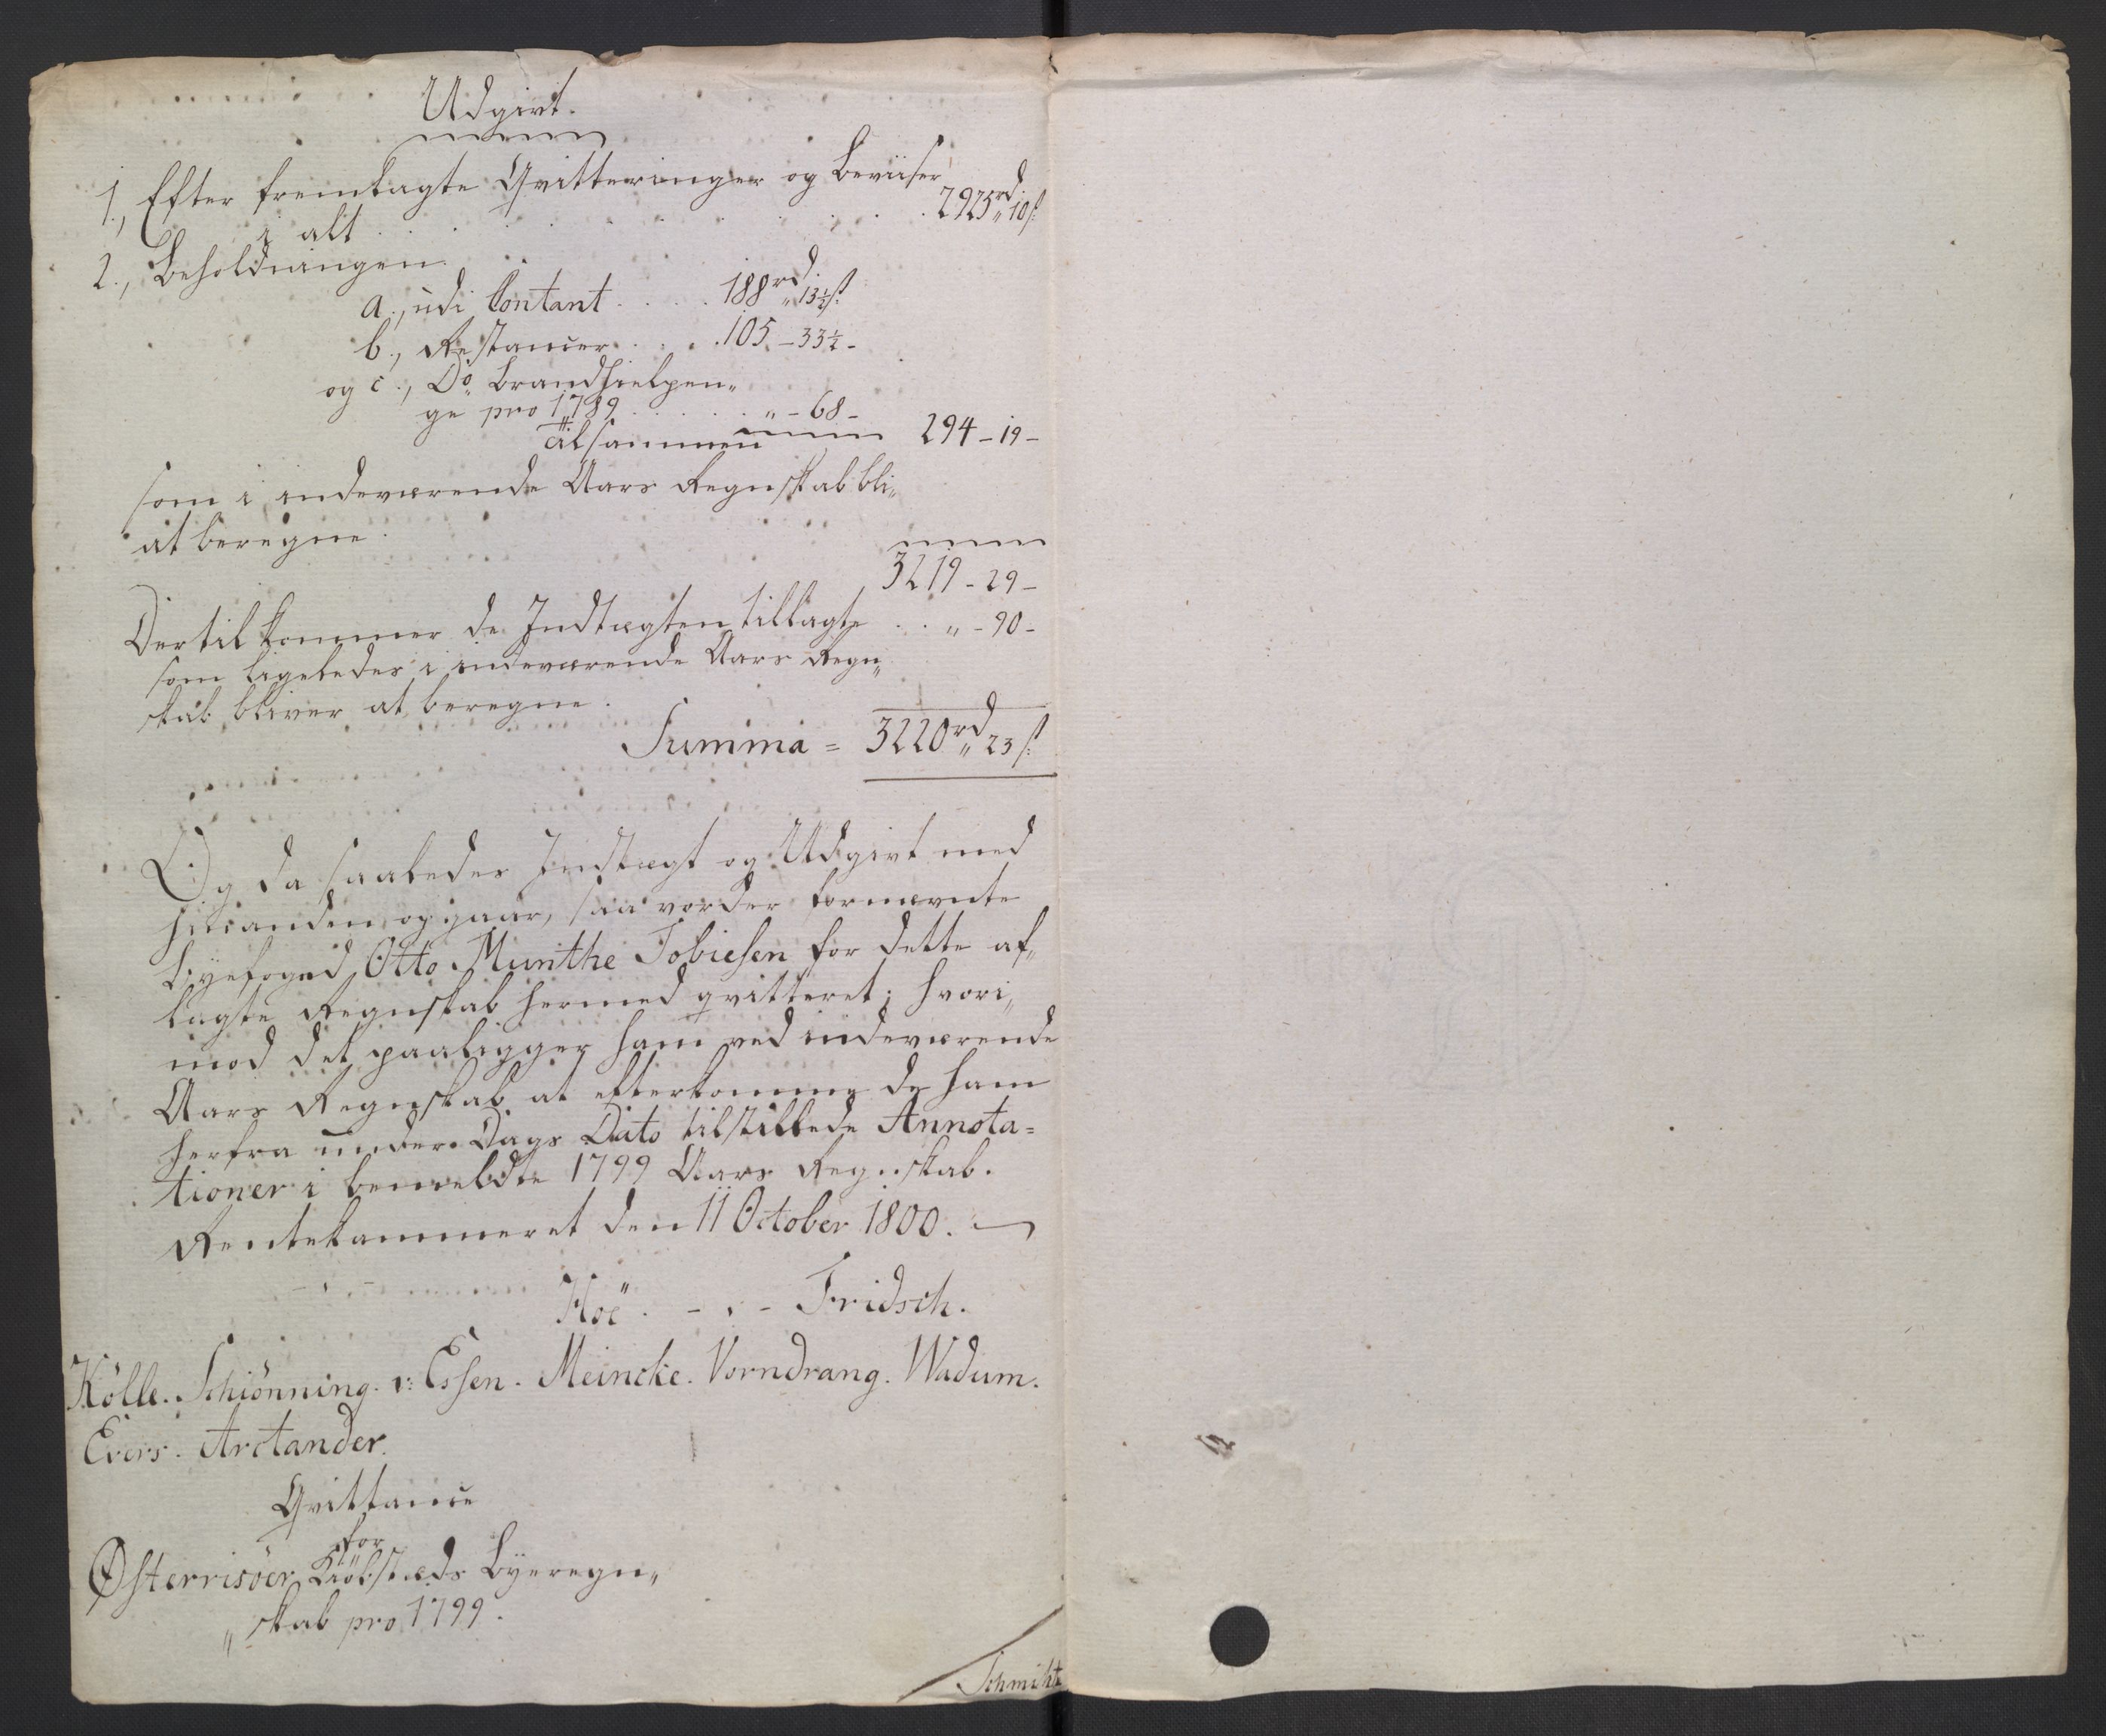 Udgivt.
1., Efter fremlagte Qvitteringer og Beviiser
i alt . . . . . . . . . . 2925rd„ 10s:
2., Beholdningen
a., udi Contant . . . . 188rd„ 13½s:
b., Restancer . . . . 105 – 33½ –
og c., Do. Brandhielpen„
ge pro 1789 . . . . . „ – 68 –
tilsammen 294 – 19 –
som i indeværende Aars Regnskab bli„
at beregne.
3219 – 29 –
Dertil kommer de Indtægten tillagte . . „ – 90 –
som ligeledes i indeværende Aars Regn„
skab bliver at beregne.
Summa = 3220rd„ 23s:
Og da saaledes Indtægt og Udgivt med
hinanden opgaar, saa vorder bornævnte
Byefoged Otto Munthe Tobiesen for dette af„
lagte Regnskab hermed qvitteret; hvori„
mod det paaligger ham ved indeværende
Aars Regnskab at efterkomme de ham
herfra under Dags Dato tilstillede Annota=
tioner i bemeldte 1799 Aars Regnskab.
Rentekammeret den 11 October 1800.
Höe. – . – Fridsch.
Kölle. Schiönning. v: Essen. Meincke. Vorndrang. Wadum.
Evers. Arctander.
Qvittance
for
Østerrisöer Kiöbstæds Byeregn„
„skab pro 1799.